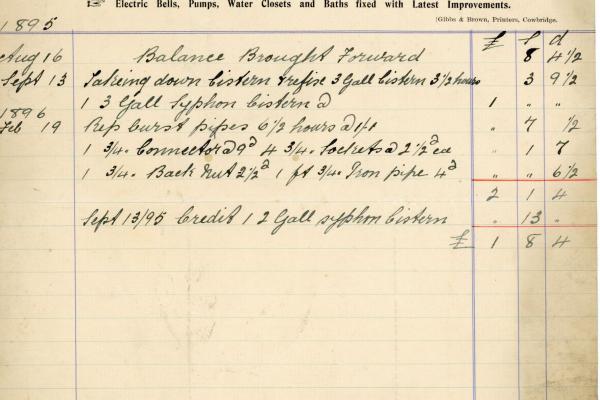 ☞ Electric Bells, Pumps, Water Closets and Baths fixed with Latest Improvements.
(Gibbs & Brown, Printers, Cowbridge.
1895 £ s d
Aug 16 Balance Brought Forward 8 4½
Sept 13 Takeing down Cistern & refixe 3 Gall Cistern 3½ hours 3 9½
1 3 Gall Syphon Cistern @ 1 " "
1896
Feb 19 Rep burst pipes 6½ hours @ 1/1 " 7 ½
1 3/4" Connector @ 9d 4 3/4" Sockets @ 2½d ea " 1 7
1 3/4" Back Nut 2½d 1 ft 3/4" Iron pipe 4d " " 6½
2 1 4
Sept 13/95 Credit 1 2 Gall syphon Cistern " 13 "
£ 1 8 4